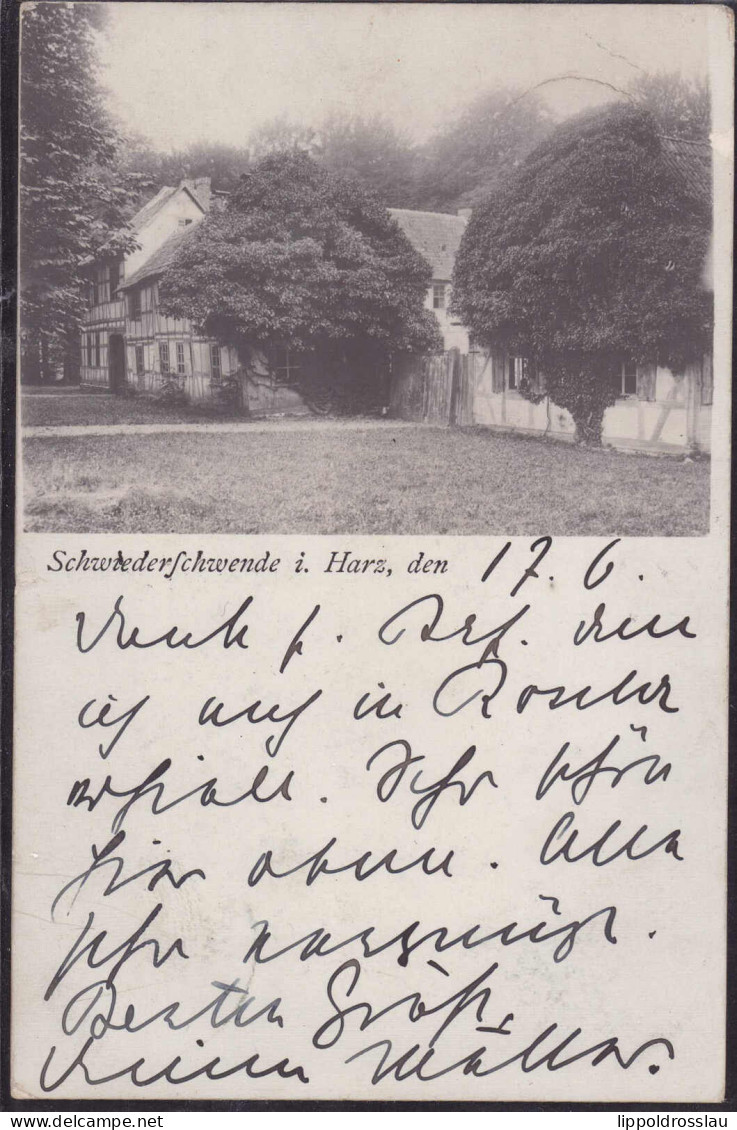 Schwiederschwende i. Harz, den 17. 6.
Denk f. Bes. den
ich auf in
erhielt. Sehr schön
hier oben. Alle
sehr vergnügt.
Besten Gruß,
Deine Müller.
lippoldrosslau